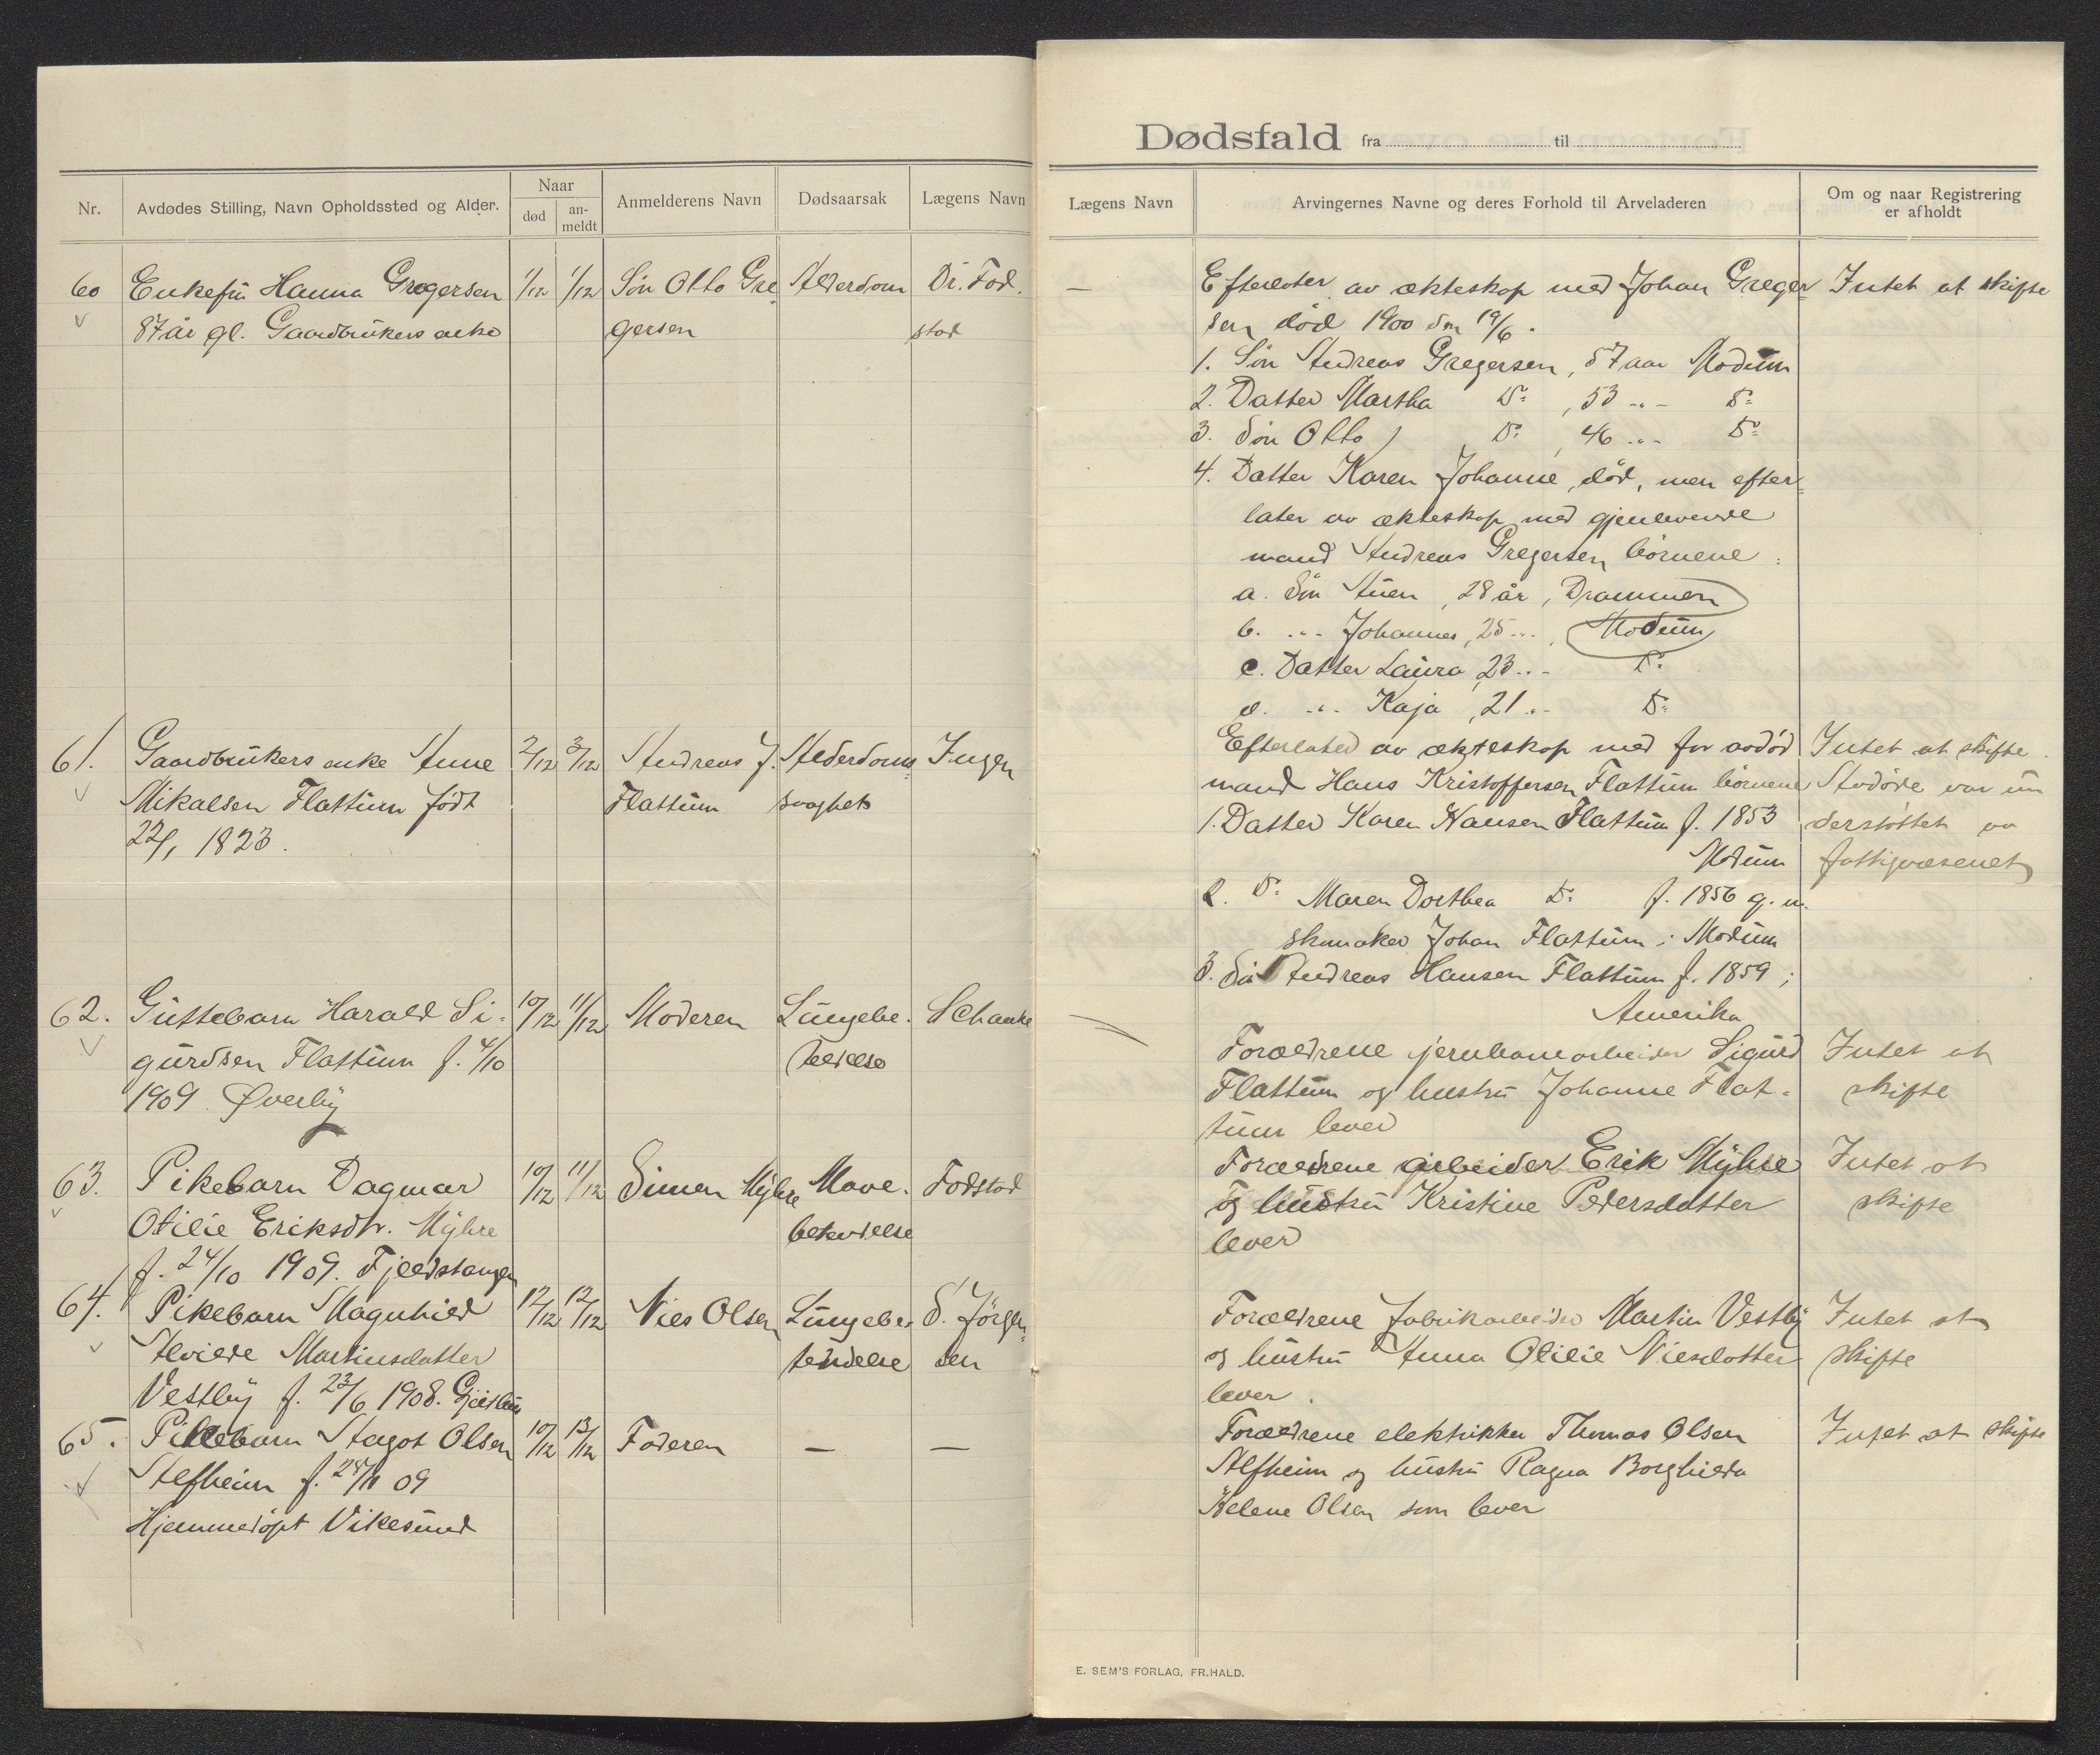 Dødsfald fra til
Nr.
Avdødes Stilling, Navn Opholdssted og Alder.
Naar
død
an-
meldt
Anmelderens Navn
Dødsaarsak
Lægens Navn
Lægens Navn
Arvingernes Navne og deres Forhold til Arveladeren
Om og naar Registrering
er afholdt
60 Enkefru Hanna Gregersen 1/12 1/12 Søn Otto Gre Alderdom Dr. Fod.
87 år gl. Gaardbrukers enke gersen stad
— Efterlater av ekteskap med Johan Greger Intet at skifte
sen død 1900 den 19/6.
1. Søn Andreas Gregersen, 57 aar Modum
2. Datter Martha Do , 53 -"- Do
3. Søn Otto , Do , 46 -"- Do
4. Datter Karen Johanne, død, men efter=
later av ekteskap med gjenlevende
mand Andreas Gregersen børnene :
a. Søn Aüen, 28 år, Drammen
b. -"- Johannes, 25 -"-, Modum
c. Datter Laura, 23 -"- Do
d. -"- Kaja, 21 -"- Do
61. Gaardbrukers enke Anne 2/12 3/12 Andreas J. Alderdoms Ingen
Mikalsen Flattum født Flattum svaghet
22/1 1823.
Efterlated av ekteskap med før avdød Intet at skifte.
mand Hans Kristoffersen Flattum børnene Avdøde var un
1. Datter Karen Hansen Flattum f. 1853 derstøttet av
Modum fattigvæsenet
2. Do Maren Dorthea Do f. 1856 g. m.
skomaker Johan Flattum i Modum
3. Søn Andreas Hansen Flattum f. 1859 i
Amerika
62. Guttebarn Harald Si- 10/12 11/12 Moderen Lungebe- Schanke
gurdsen Flattum f. 4/10 tendelse
1909. Øverby
Foraeldrene jernbanearbeider Sigurd Intet at
Flattum og hustru Johanne Flat- skifte
tum lever
63. Pikebarn Dagmar 10/12 11/12 Simen Myhre Mave- Fodstad
Otilie Eriksdtr. Myhre betendelse
f. 24/10 1909. Fjeldstangen
Foraeldrene arbeider Erik Myhre Intet at
og hustru Kristine Pedersdatter skifte
lever
64. Pikebarn Magnhild 12/12 12/12 Nils Olsen Lungebe- S. Jørgen=
Alvilde Martinsdatter tendelse sen
Vestby f. 23/6 1908.
Foraeldrene fabrikarbeider Martin Vestby Intet at
og hustru Anna Otilie Nilsdatter skifte
lever.
65. Pikebarn Aagot Olsen 10/12 13/12 Faderen — —
Alfheim f. 25/11 09
Hjemmedøpt Vikesund
Foraeldrene elektriker Thomas Olsen Intet at skifte
Alfheim og hustru Ragna Borghilda
Helene Olsen som lever
E. SEM'S FORLAG, FR.HALD.